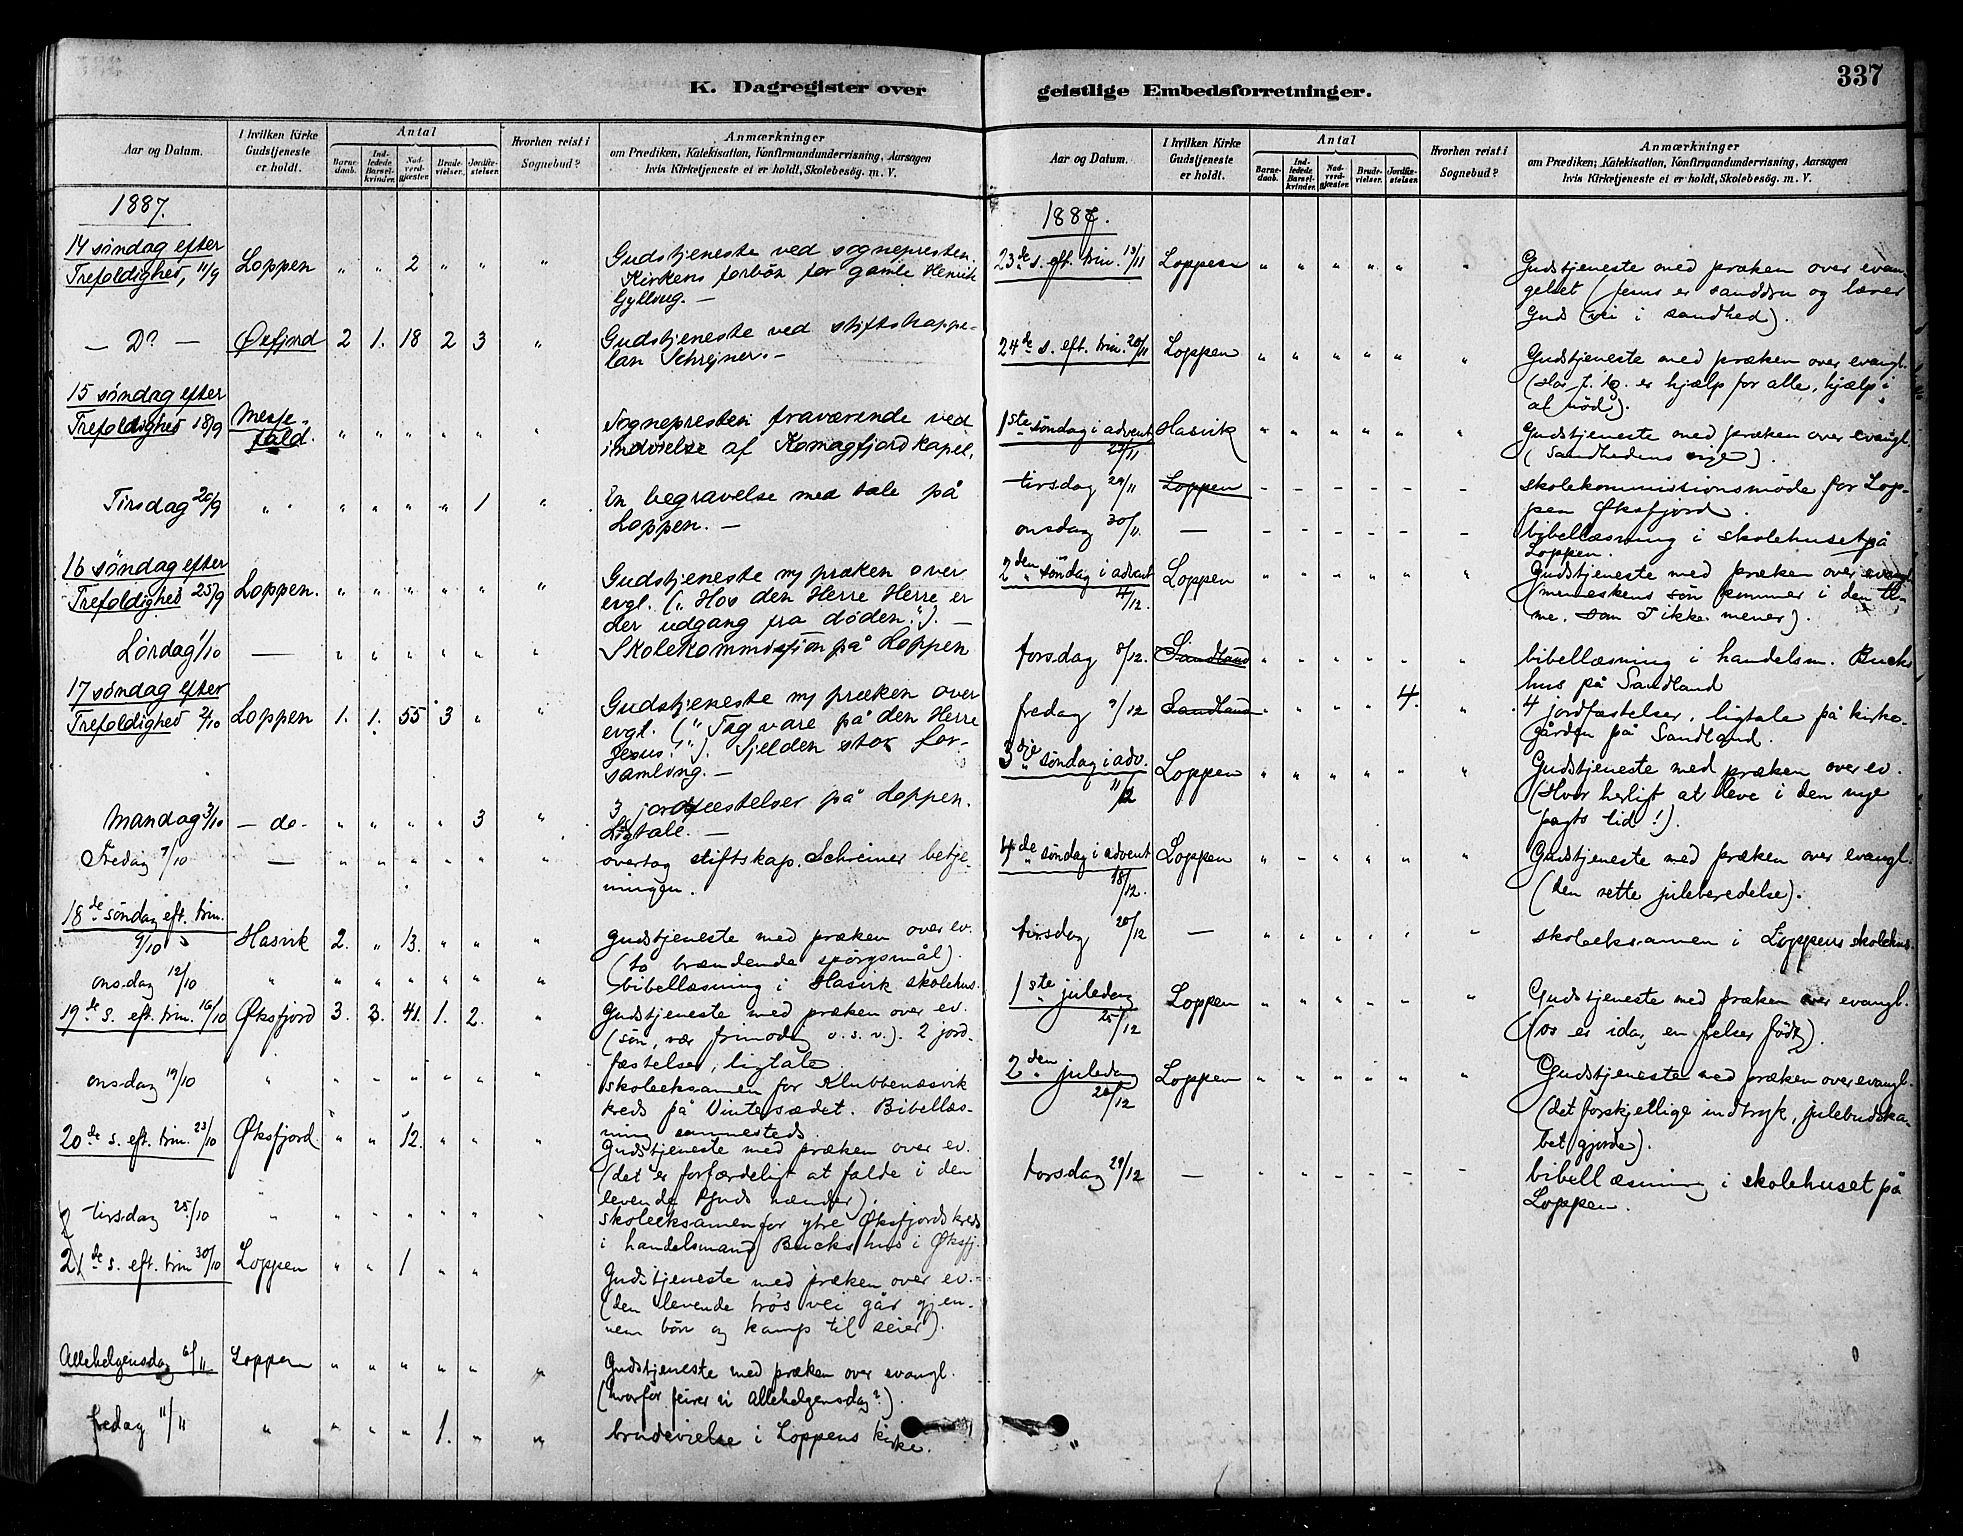 K. Dagregister over geistlige Embedsforretninger.
337
Aar og Datum.
I hvilken Kirke Gudstjeneste er holdt.
Antal
Barnedaab.
Indledede Barselkvinder.
Nadverdgjæster.
Brudevielser.
Jordfæstelser.
Hvorhen reist i Sognebud?
Anmærkninger
om Prædiken, Katekisation, Konfirmandundervisning, Aarsagen
hvis Kirketjeneste ei er holdt, Skolebesøg. m. V.
1887.
14 søndag efter
Trefoldighed, 11/9 Loppen " " 2 " " "
Gudstjeneste ved sognepresten.
Kirkens forbön for gamle Henrik
Gyllvug. —
— Do — Øxfjord 2 1. 18 2 3 "
Gudstjeneste ved stiftskappe-
lan Schrejner. —
15 søndag efter
Trefoldighed 18/9 Messe-
fald. " " " " " "
Sognepresten fraværende ved
indvielse af Komagfjord kapel.
Tirsdag 20/9 " " " " " " 1 "
En begravelse med tale på
Loppen. —
16 søndag efter
Trefoldighed 25/9 Loppen. " " " " " "
Gudstjeneste m/ præken over
evgl. („Hos den Herre Herre er
der udgang fra døden.”). —
Lørdag 1/10 — " " " " " "
Skolekommission på Loppen
17 søndag efter
Trefoldighed 2/10 Loppen 1. 1. 55 3 " "
Gudstjeneste m/ præken over
evgl. („Tag vare på den Herre
Jesus!”). Sjelden stor for-
samling. —
Mandag 3/10 — do - " " " " 3 "
3 jordfæstelser på Loppen.
Ligtale. —
Fredag 7/10 — " " " " " "
overtog stiftskap. Schreiner betje-
ningen.
18de søndag eft. trin.
9/10 Hasvik 2. " 13. " " "
gudstjeneste med præken over ev.
(to brændende spörgsmål).
onsdag 12/10 " " " " " " "
bibellæsning i Hasvik skolehus.
19de s. eft. trin. 16/10 Øksfjord 3. 3. 41. 1. 2. "
Gudstjeneste med præken over ev.
(sön, vær frimodig o. s. v.). 2 jord-
fæstelser, ligtale.
onsdag 19/10 " " " " " " "
skoleeksamen for Klubbenæsvik
kreds på Vintersædet. Bibellæs-
ning sammesteds.
20de s. eft. trin. 23/10 Øksfjord " " 12. " " "
Gudstjeneste med præken over ev.
(det er forfærdeligt at falde i den
levende Guds hænder).
tirsdag 25/10 " " " " " " "
skoleeksamen for ytre Øksfjords kreds
i handelsmand Bucks hus i Øksfj.
21de s. eft. trin 30/10 Loppen " " 1 " "
Gudstjeneste med præken over ev.
(den levende trös vei går gjen-
nem bön og kamp til seier).
Allehelgensdag 6/11 Loppen " " " " " "
Gudstjeneste med præken over evangl.
(hvorfor feirer vi Allehelgensdag?).
fredag 11/11 " " " " 1. " "
brudevielse i Loppens kirke.
Aar og Datum.
I hvilken Kirke Gudstjeneste er holdt.
Antal
Barnedaab.
Indledede Barselkvinder.
Nadverdgjæster.
Brudevielser.
Jordfæstelser.
Hvorhen reist i Sognebud?
Anmærkninger
om Prædiken, Katekisation, Konfirmandundervisning, Aarsagen
hvis Kirketjeneste ei er holdt, Skolebesøg. m. V.
1887.
23de s. eft. trin. 13/11 Loppen " " " " " "
Gudstjeneste med præken over evan-
geliet (Jesus er sanddru og lærer
Guds vei i sandhed).
24de s. eft. trin. 20/11 Loppen " " " " " "
Gudstjeneste med præken over evangl.
(Hos J. er hjælp for alle, hjælp i
al nöd).
1ste søndag i advent
27/11 Hasvik " " " " " "
Gudstjeneste med præken over evangl.
(Sandhedens rige).
tirsdag 29/11 Loppen - - - - - -
skolekommissionsmøde for Lop-
pen Øksfjord.
onsdag 30/11 — - - - - - -
bibellæsning i skolehuset på
Loppen.
2den søndag i advent
4/12. Loppen " " " " " "
Gudstjeneste med præken over evangl.
(menneskens sön kommer i den ti-
me, som I ikke mener).
torsdag 8/12. Sandland " " " " " "
bibellæsning i handelsm. Bucks
hus på Sandland
fredag 9/12 Sandland " " " " 4. "
4 jordfæstelser, ligtale på kirke-
gården på Sandland.
3die søndag i adv.
11/12 Loppen " " " " " "
Gudstjeneste med præken over ev.
(Hvor herligt at leve i den nye
pagts tid!).
4de søndag i advent
18/12. Loppen " " " " " "
Gudstjeneste med præken over evangl.
(den rette juleberedelse).
tirsdag 20/12 — " " " " " "
skoleeksamen i Loppens skolehus.
1ste juledag
25/12 Loppen " " " " " "
Gudstjeneste med præken over evangl.
(os er idag en frelser født).
2den juledag
26/12 Loppen " " " " " "
Gudstjeneste med præken over evangl.
(det forskjellige indtryk, julebudska-
bet gjorde).
torsdag 29/12 — " " " " " "
bibellæsning i skolehuset på
Loppen.